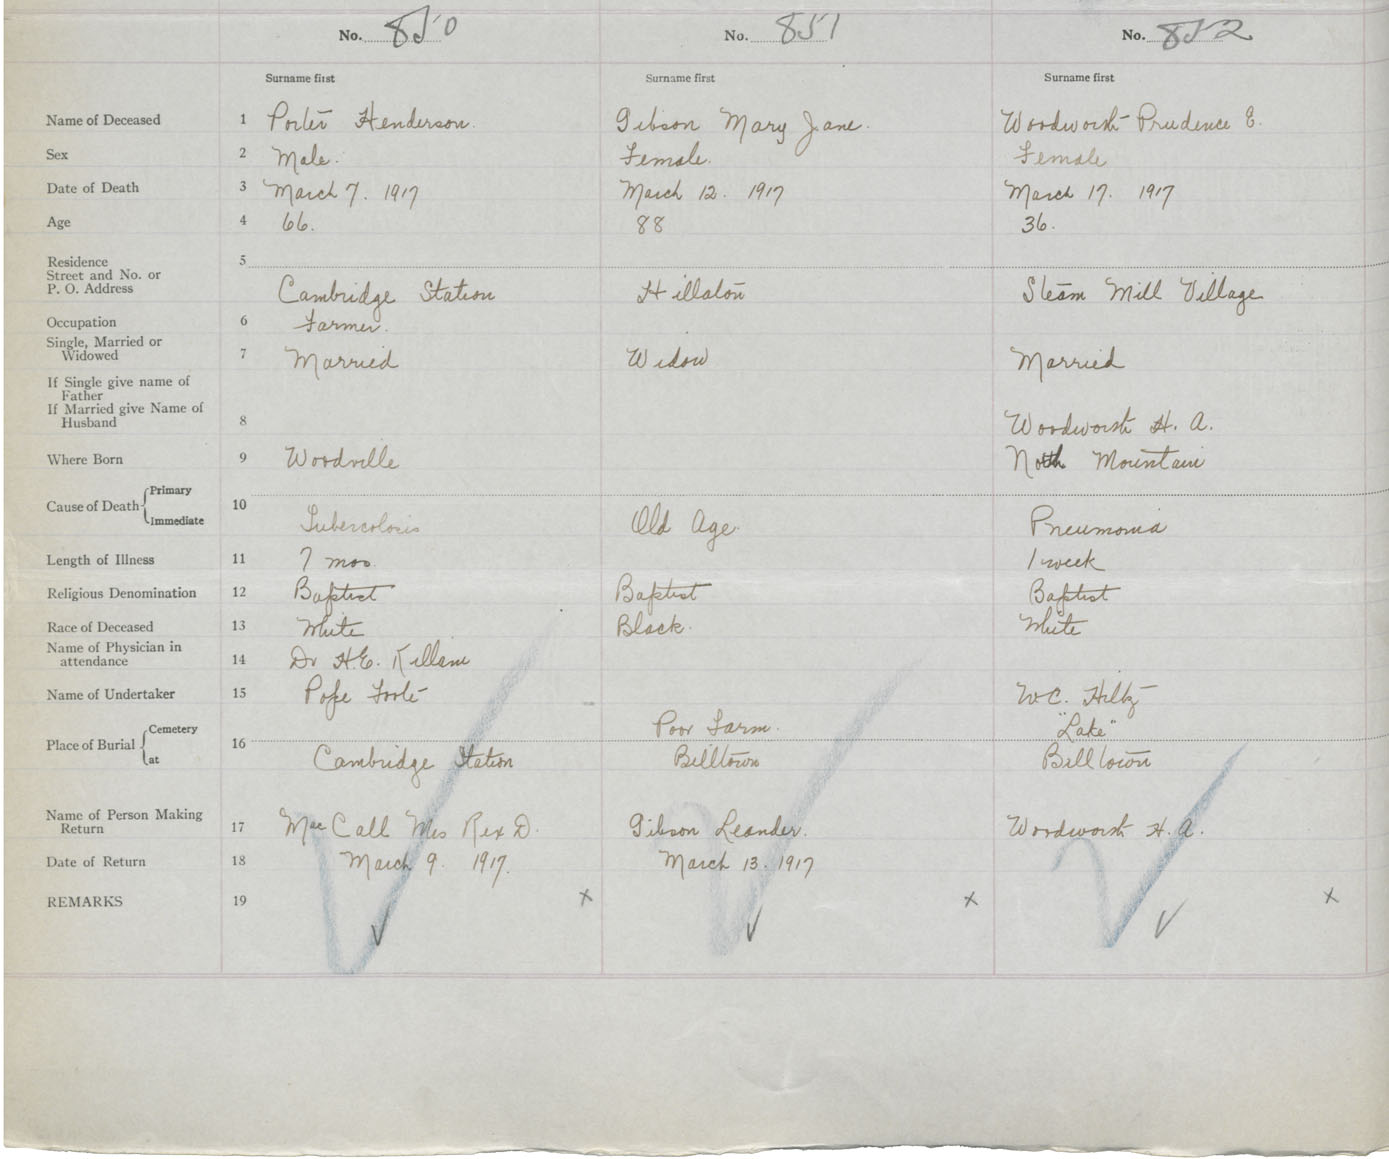 No. 850 No. 851 No. 852
Surname first Surname first Surname first
Name of Deceased 1 Porter Henderson. Gibson Mary Jane. Woodworth Prudence E.
Sex 2 Male. Female. Female
Date of Death 3 March 7. 1917 March 12. 1917 March 17. 1917
Age 4 66. 88 36.
Residence 5
Street and No. or
P. O. Address Cambridge Station Hillaton Steam Mill Village
Occupation 6 Farmer.
Single, Married or
Widowed 7 Married Widow Married
If Single give name of
Father
If Married give Name of
Husband 8 Woodworth H. A.
Where Born 9 Woodville North Mountain
Cause of Death Primary
Immediate 10 Tubercolosis Old Age. Pneumonia
Length of Illness 11 7 mos. 1 week
Religious Denomination 12 Baptist Baptist Baptist
Race of Deceased 13 White Black. White
Name of Physician in
attendance 14 Dr H.E. Killam
Name of Undertaker 15 Pope Foote W.C. Hiltz
Place of Burial Cemetery 16 Poor Farm. "Lake"
at Cambridge Station Billtown Billtown
Name of Person Making
Return 17 MacCall Mrs Rex D. Gibson Leander. Woodworth H. A.
Date of Return 18 March 9. 1917. March 13. 1917
REMARKS 19 x x x